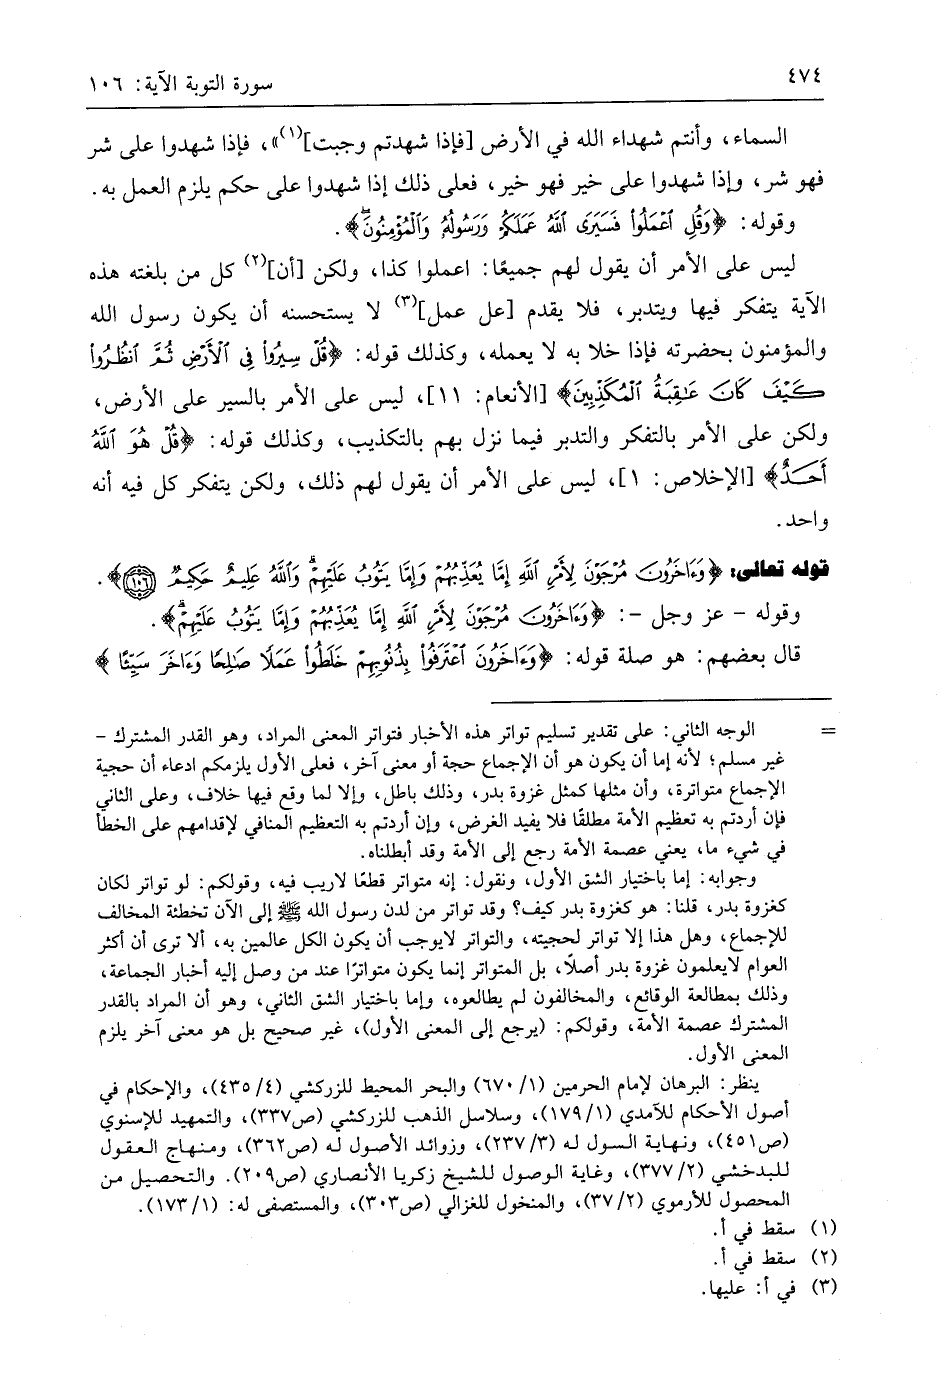 ٤٧٤
سورة التوبة الآية: ١٠٦
السماء، وأنتم شهداء الله في الأرض [فإذا شهدتم وجبت](١)»، فإذا شهدوا على شر
فهو شر، وإذا شهدوا على خير فهو خير، فعلى ذلك إذا شهدوا على حكم يلزم العمل به.
وقوله: ﴿وَقُلِ ٱعْمَلُوا۟ فَسَيَرَى ٱللَّهُ عَمَلَكُمْ وَرَسُولُهُ وَٱلْمُؤْمِنُونَۖ﴾.
ليس على الأمر أن يقول لهم جميعًا: اعملوا كذا، ولكن [أن](٢) كل من بلغته هذه
الآية يتفكر فيها ويتدبر، فلا يقدم [عل عمل](٣) لا يستحسنه أن يكون رسول الله
والمؤمنون بحضرته فإذا خلا به لا يعمله، وكذلك قوله: ﴿قُلْ سِيرُوا۟ فِى ٱلْأَرْضِ ثُمَّ ٱنظُرُوا۟
كَيْفَ كَانَ عَـٰقِبَةُ ٱلْمُكَذِّبِينَ﴾ [الأنعام: ١١]، ليس على الأمر بالسير على الأرض،
ولكن على الأمر بالتفكر والتدبر فيما نزل بهم بالتكذيب، وكذلك قوله: ﴿قُلْ هُوَ ٱللَّهُ
أَحَدٌ﴾ [الإخلاص: ١]، ليس على الأمر أن يقول لهم ذلك، ولكن يتفكر كل فيه أنه
واحد.
قوله تعالى: ﴿وَءَاخَرُونَ مُرْجَوْنَ لِأَمْرِ ٱللَّهِ إِمَّا يُعَذِّبُهُمْ وَإِمَّا يَتُوبُ عَلَيْهِمْۗ وَٱللَّهُ عَلِيمٌ حَكِيمٌ ١٠٦﴾.
وقوله - عز وجل -: ﴿وَءَاخَرُونَ مُرْجَوْنَ لِأَمْرِ ٱللَّهِ إِمَّا يُعَذِّبُهُمْ وَإِمَّا يَتُوبُ عَلَيْهِمْۗ﴾.
قال بعضهم: هو صلة قوله: ﴿وَءَاخَرُونَ ٱعْتَرَفُوا۟ بِذُنُوبِهِمْ خَلَطُوا۟ عَمَلًا صَـٰلِحًا وَءَاخَرَ سَيِّئًا﴾
= الوجه الثاني: على تقدير تسليم تواتر هذه الأخبار فتواتر المعنى المراد، وهو القدر المشترك -
غير مسلم؛ لأنه إما أن يكون هو أن الإجماع حجة أو معنى آخر، فعلى الأول يلزمكم ادعاء أن حجية
الإجماع متواترة، وأن مثلها كمثل غزوة بدر، وذلك باطل، وإلا لما وقع فيها خلاف، وعلى الثاني
فإن أردتم به تعظيم الأمة مطلقًا فلا يفيد الغرض، وإن أردتم به التعظيم المنافي لإقدامهم على الخطأ
في شيء ما، يعني عصمة الأمة رجع إلى الأمة وقد أبطلناه.
وجوابه: إما باختيار الشق الأول، ونقول: إنه متواتر قطعًا لاريب فيه، وقولكم: لو تواتر لكان
كغزوة بدر، قلنا: هو كغزوة بدر كيف؟ وقد تواتر من لدن رسول الله ﷺ إلى الآن تخطئة المخالف
للإجماع، وهل هذا إلا تواتر لحجيته، والتواتر لايوجب أن يكون الكل عالمين به، ألا ترى أن أكثر
العوام لايعلمون غزوة بدر أصلًا، بل المتواتر إنما يكون متواترًا عند من وصل إليه أخبار الجماعة،
وذلك بمطالعة الوقائع، والمخالفون لم يطالعوه، وإما باختيار الشق الثاني، وهو أن المراد بالقدر
المشترك عصمة الأمة، وقولكم: (يرجع إلى المعنى الأول)، غير صحيح بل هو معنى آخر يلزم
المعنى الأول.
ينظر: البرهان لإمام الحرمين (١/ ٦٧٠) والبحر المحيط للزركشي (٤/ ٤٣٥)، والإحكام في
أصول الأحكام للآمدي (١/ ١٧٩)، وسلاسل الذهب للزركشي (ص٣٣٧)، والتمهيد للإسنوي
(ص٤٥١)، ونهاية السول له (٣/ ٢٣٧)، وزوائد الأصول له (ص٣٦٢)، ومنهاج العقول
للبدخشي (٢/ ٣٧٧)، وغاية الوصول للشيخ زكريا الأنصاري (ص٢٠٩). والتحصيل من
المحصول للأرموي (٢/ ٣٧)، والمنخول للغزالي (ص٣٠٣)، والمستصفى له: (١/ ١٧٣).
(١) سقط في أ.
(٢) سقط في أ.
(٣) في أ: عليها.